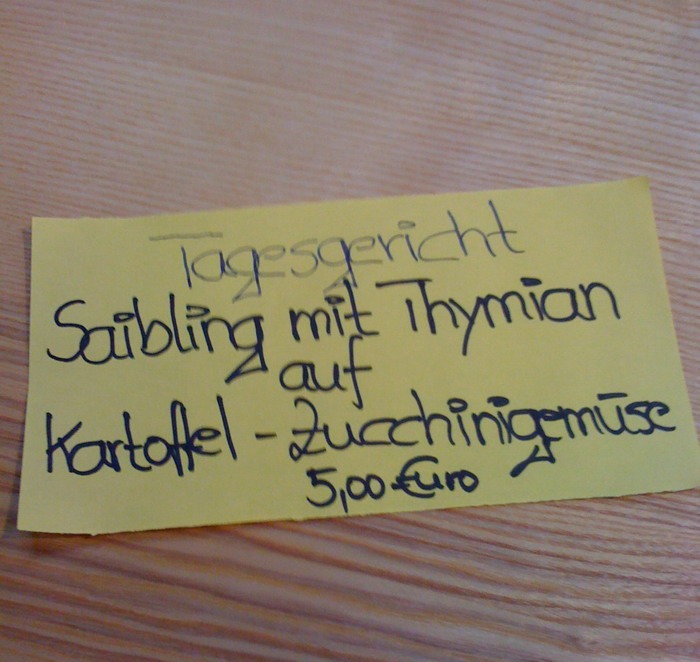 Tagesgericht
Saibling mit Thymian
auf
Kartoffel - Zucchinigemüse
5,00 €uro